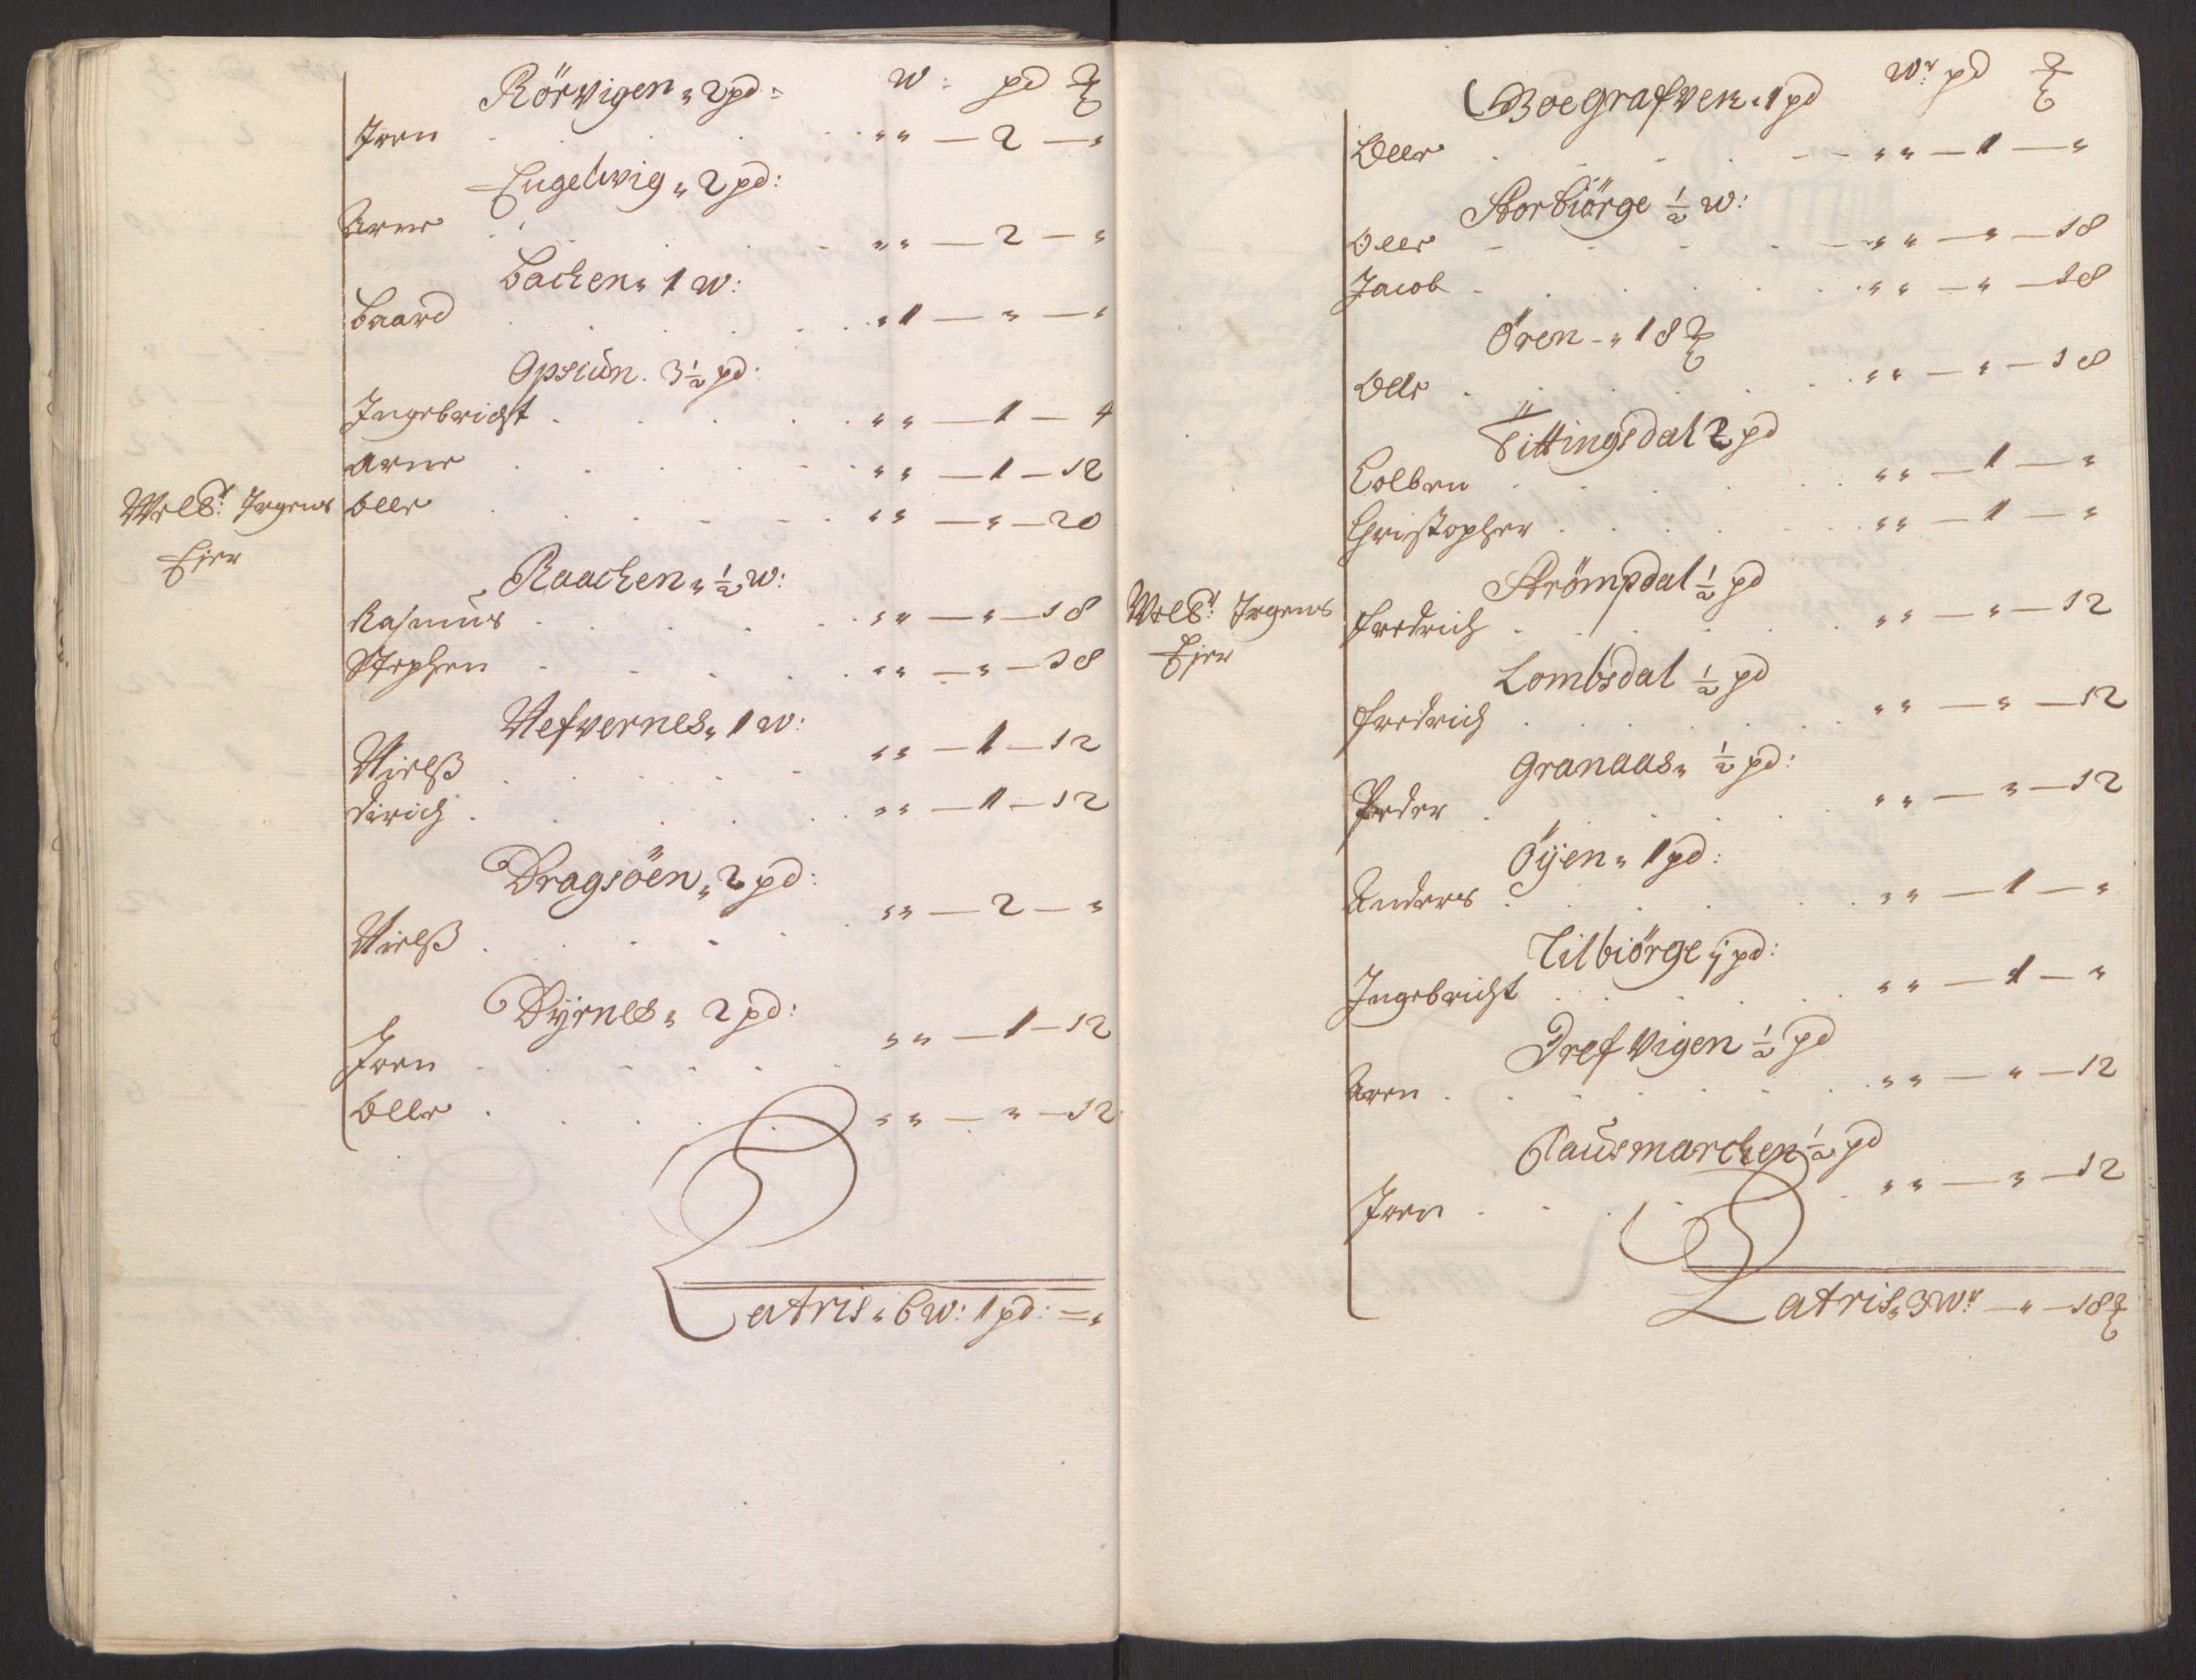 Rörvigen „ 2 pd: w: pd ℔
Iven „ „ — 2 — „
Engelwig „ 2 pd:
Arne „ „ — 2 — „
Bachen „ 1 w:
Baard „ 1 — „ — „
Opsiun. 3½ pd:
Ingebricht „ „ — 1 — 4
Arne „ „ — 1 — 12
Welb: Irgens Olle „ „ — „ — 20
Eier
Raachen „ ½ w:
Rasmus „ „ — „ — 18
Stephen „ „ — „ — 18
Nefvernes „ 1 w:
Nielß „ „ — 1 — 12
Dirich „ „ — 1 — 12
Dragsöen „ 2 pd:
Nielß „ „ — 2 — „
Dÿrnes „ 2 pd:
Joen „ „ — 1 — 12
Olle „ „ — „ — 12
Latris „ 6 w: 1 pd: = „
Boegrafven „ 1 pd wr: pd ℔
Olle „ „ — 1 — „
Storbiörge ½ w:
Olle „ „ — „ — 18
Jacob „ „ — „ — 18
Ören - „ 18 ℔
Olle „ „ — „ — 18
Tittingsdal 2 pd
Colben „ „ — 1 — „
Christopher „ „ — 1 — „
Strömpdal ½ pd
Welb: Irgens Fredrich „ „ — „ — 12
Eier
Lombsdal ½ pd
Fredrich „ „ — „ — 12
Granaas „ ½ pd:
Peder „ „ — „ — 12
Öÿen „ 1 pd:
Anders „ „ — 1 — „
Tilbiörge j pd:
Ingebricht „ „ — 1 — „
Drefvigen ½ pd
Aren „ „ — „ — 12
Clausmarchen ½ pd
Iven „ „ — „ — 12
Latris „ 3 wr: — „ — 18 ℔